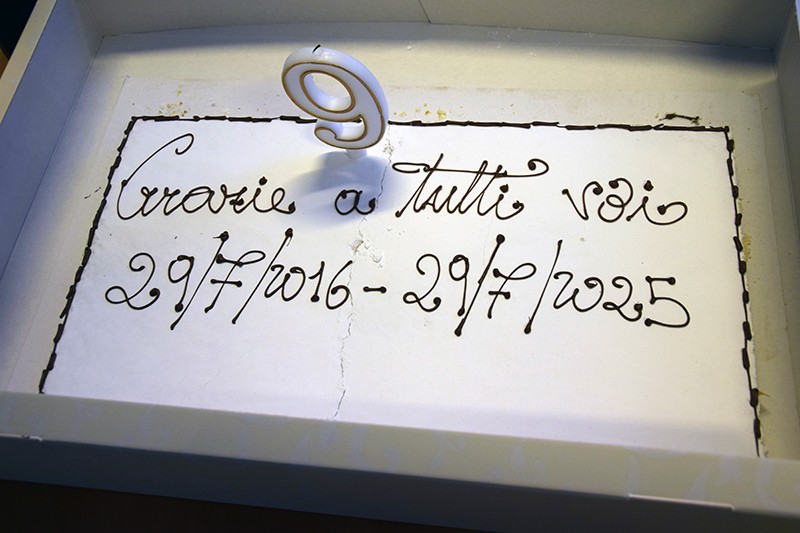 9
Grazie a tutti voi
29/7/2016 - 29/7/2025